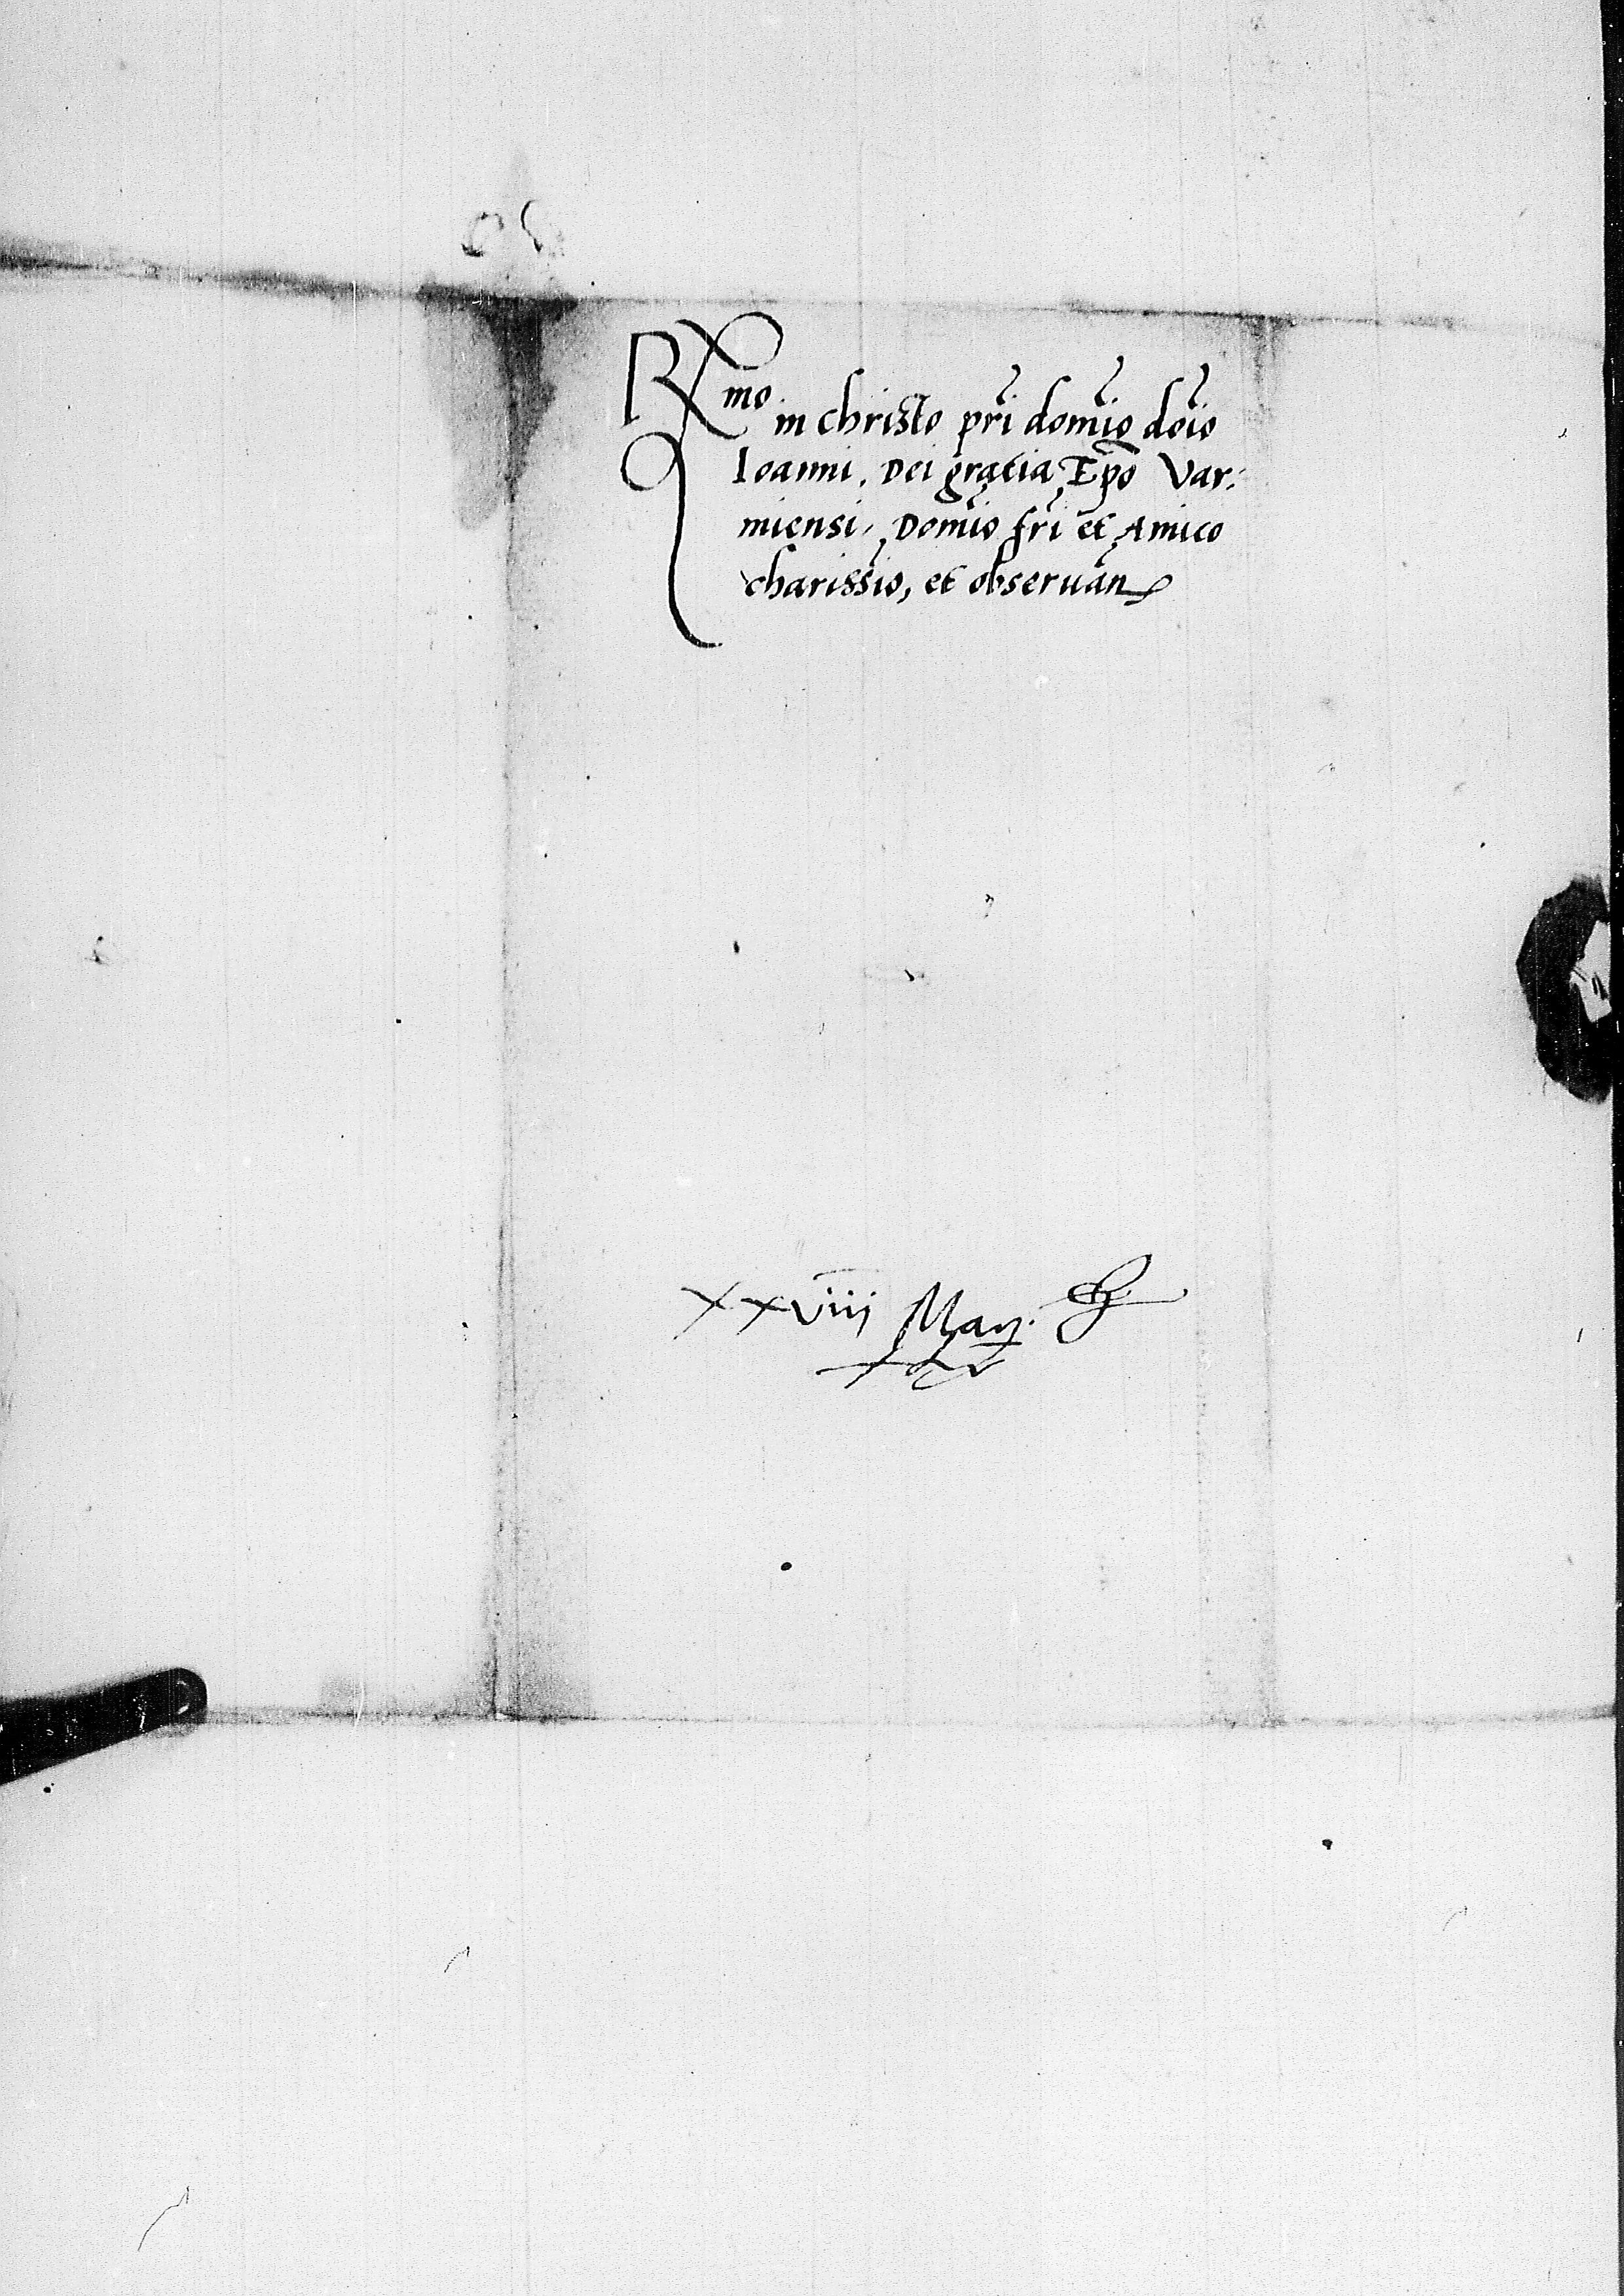 Rmo in Christo pri domio doio
Ioanni. Dei gratia Epo Var:
miensi, Domio fri et Amico
charissio, et observan
xxviii Maij.